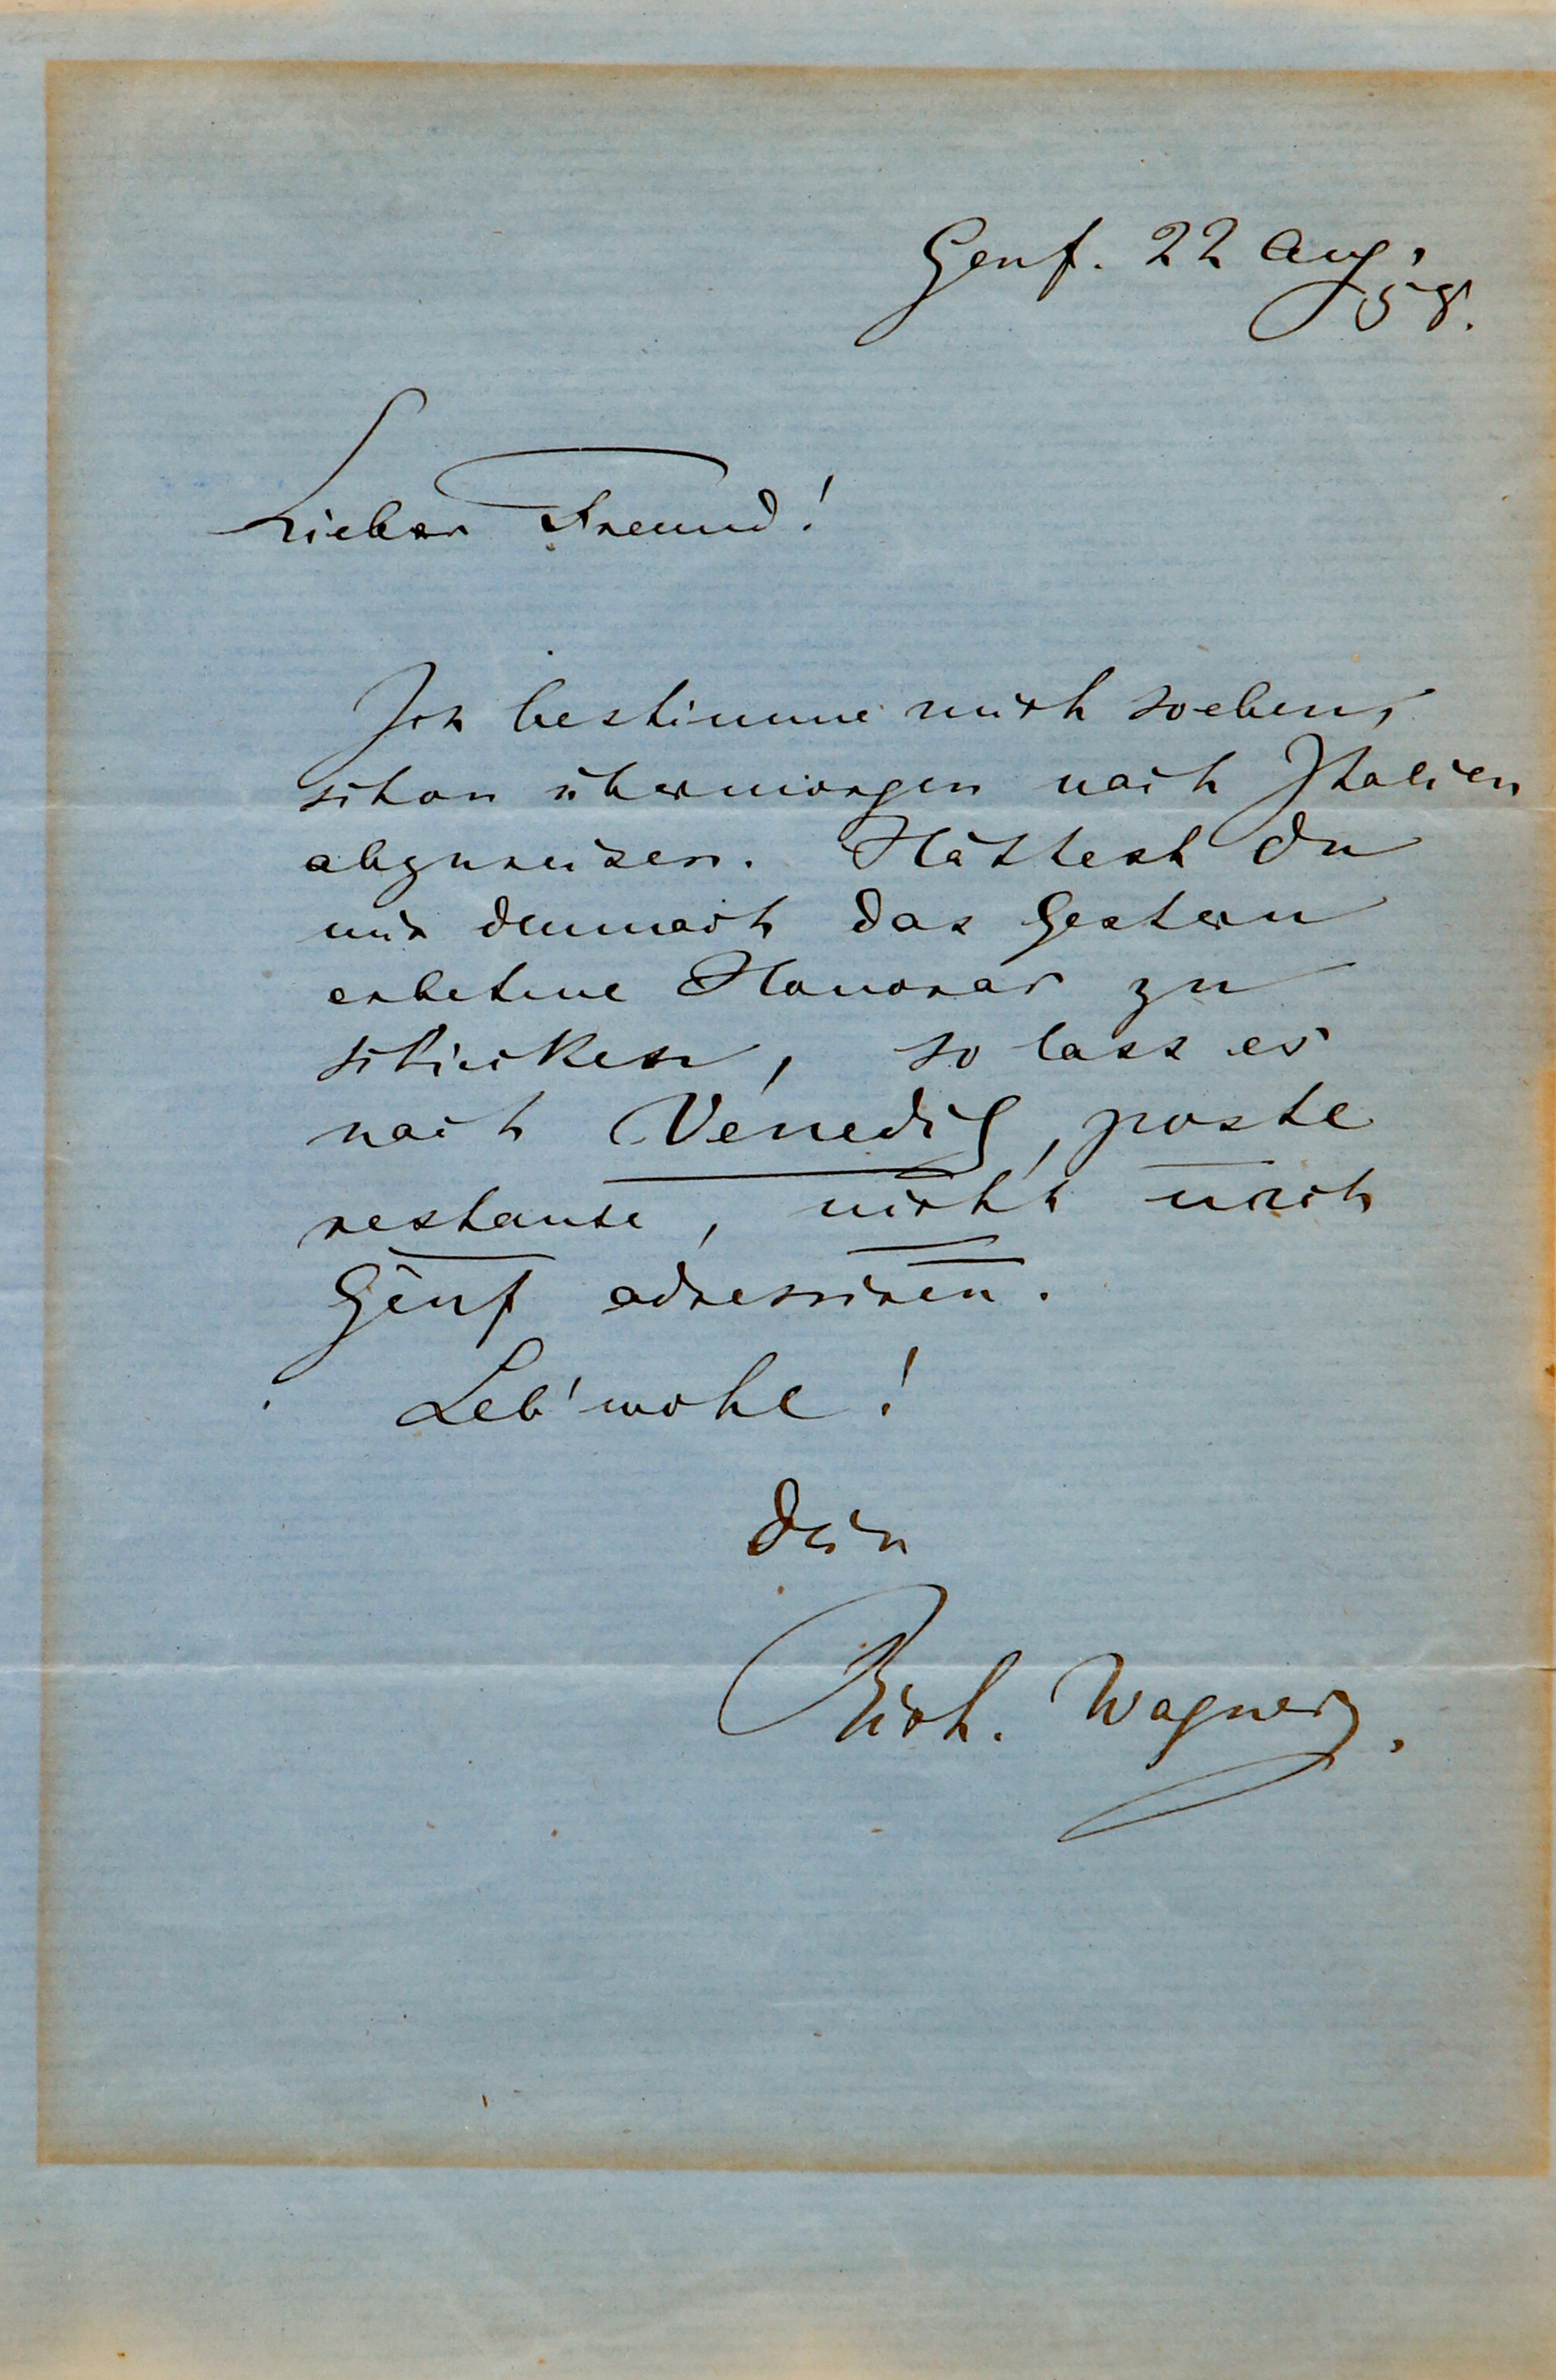 Genf. 22 Aug.
58.
Lieber Freund!
Ich bestimme mich soeben,
schon übermorgen nach Italien
abzureisen. Hättest Du
mir demnach das gestern
erbetene Honorar zu
schicken, so lass es
nach Venedig, poste
restante, nicht nach
Genf adressiren.
Leb' wohl!
Dein
Rich. Wagner.